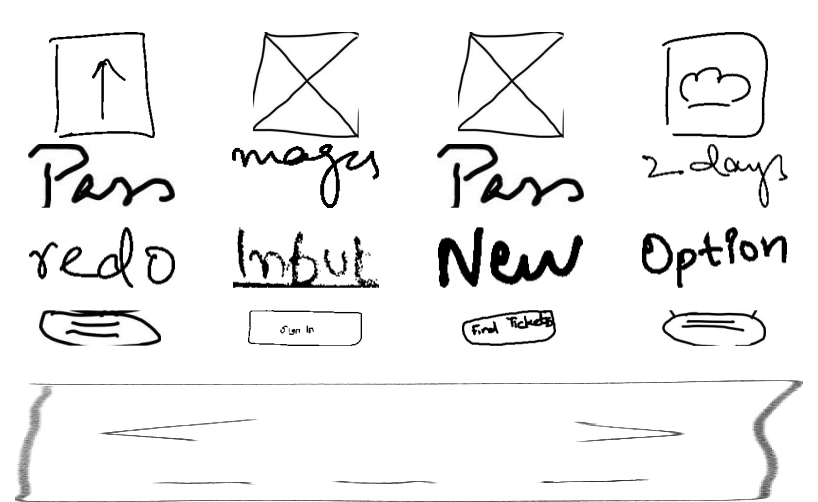 Pass mages Pass 2 days
redo Input New Option
Sign In Find Tickets